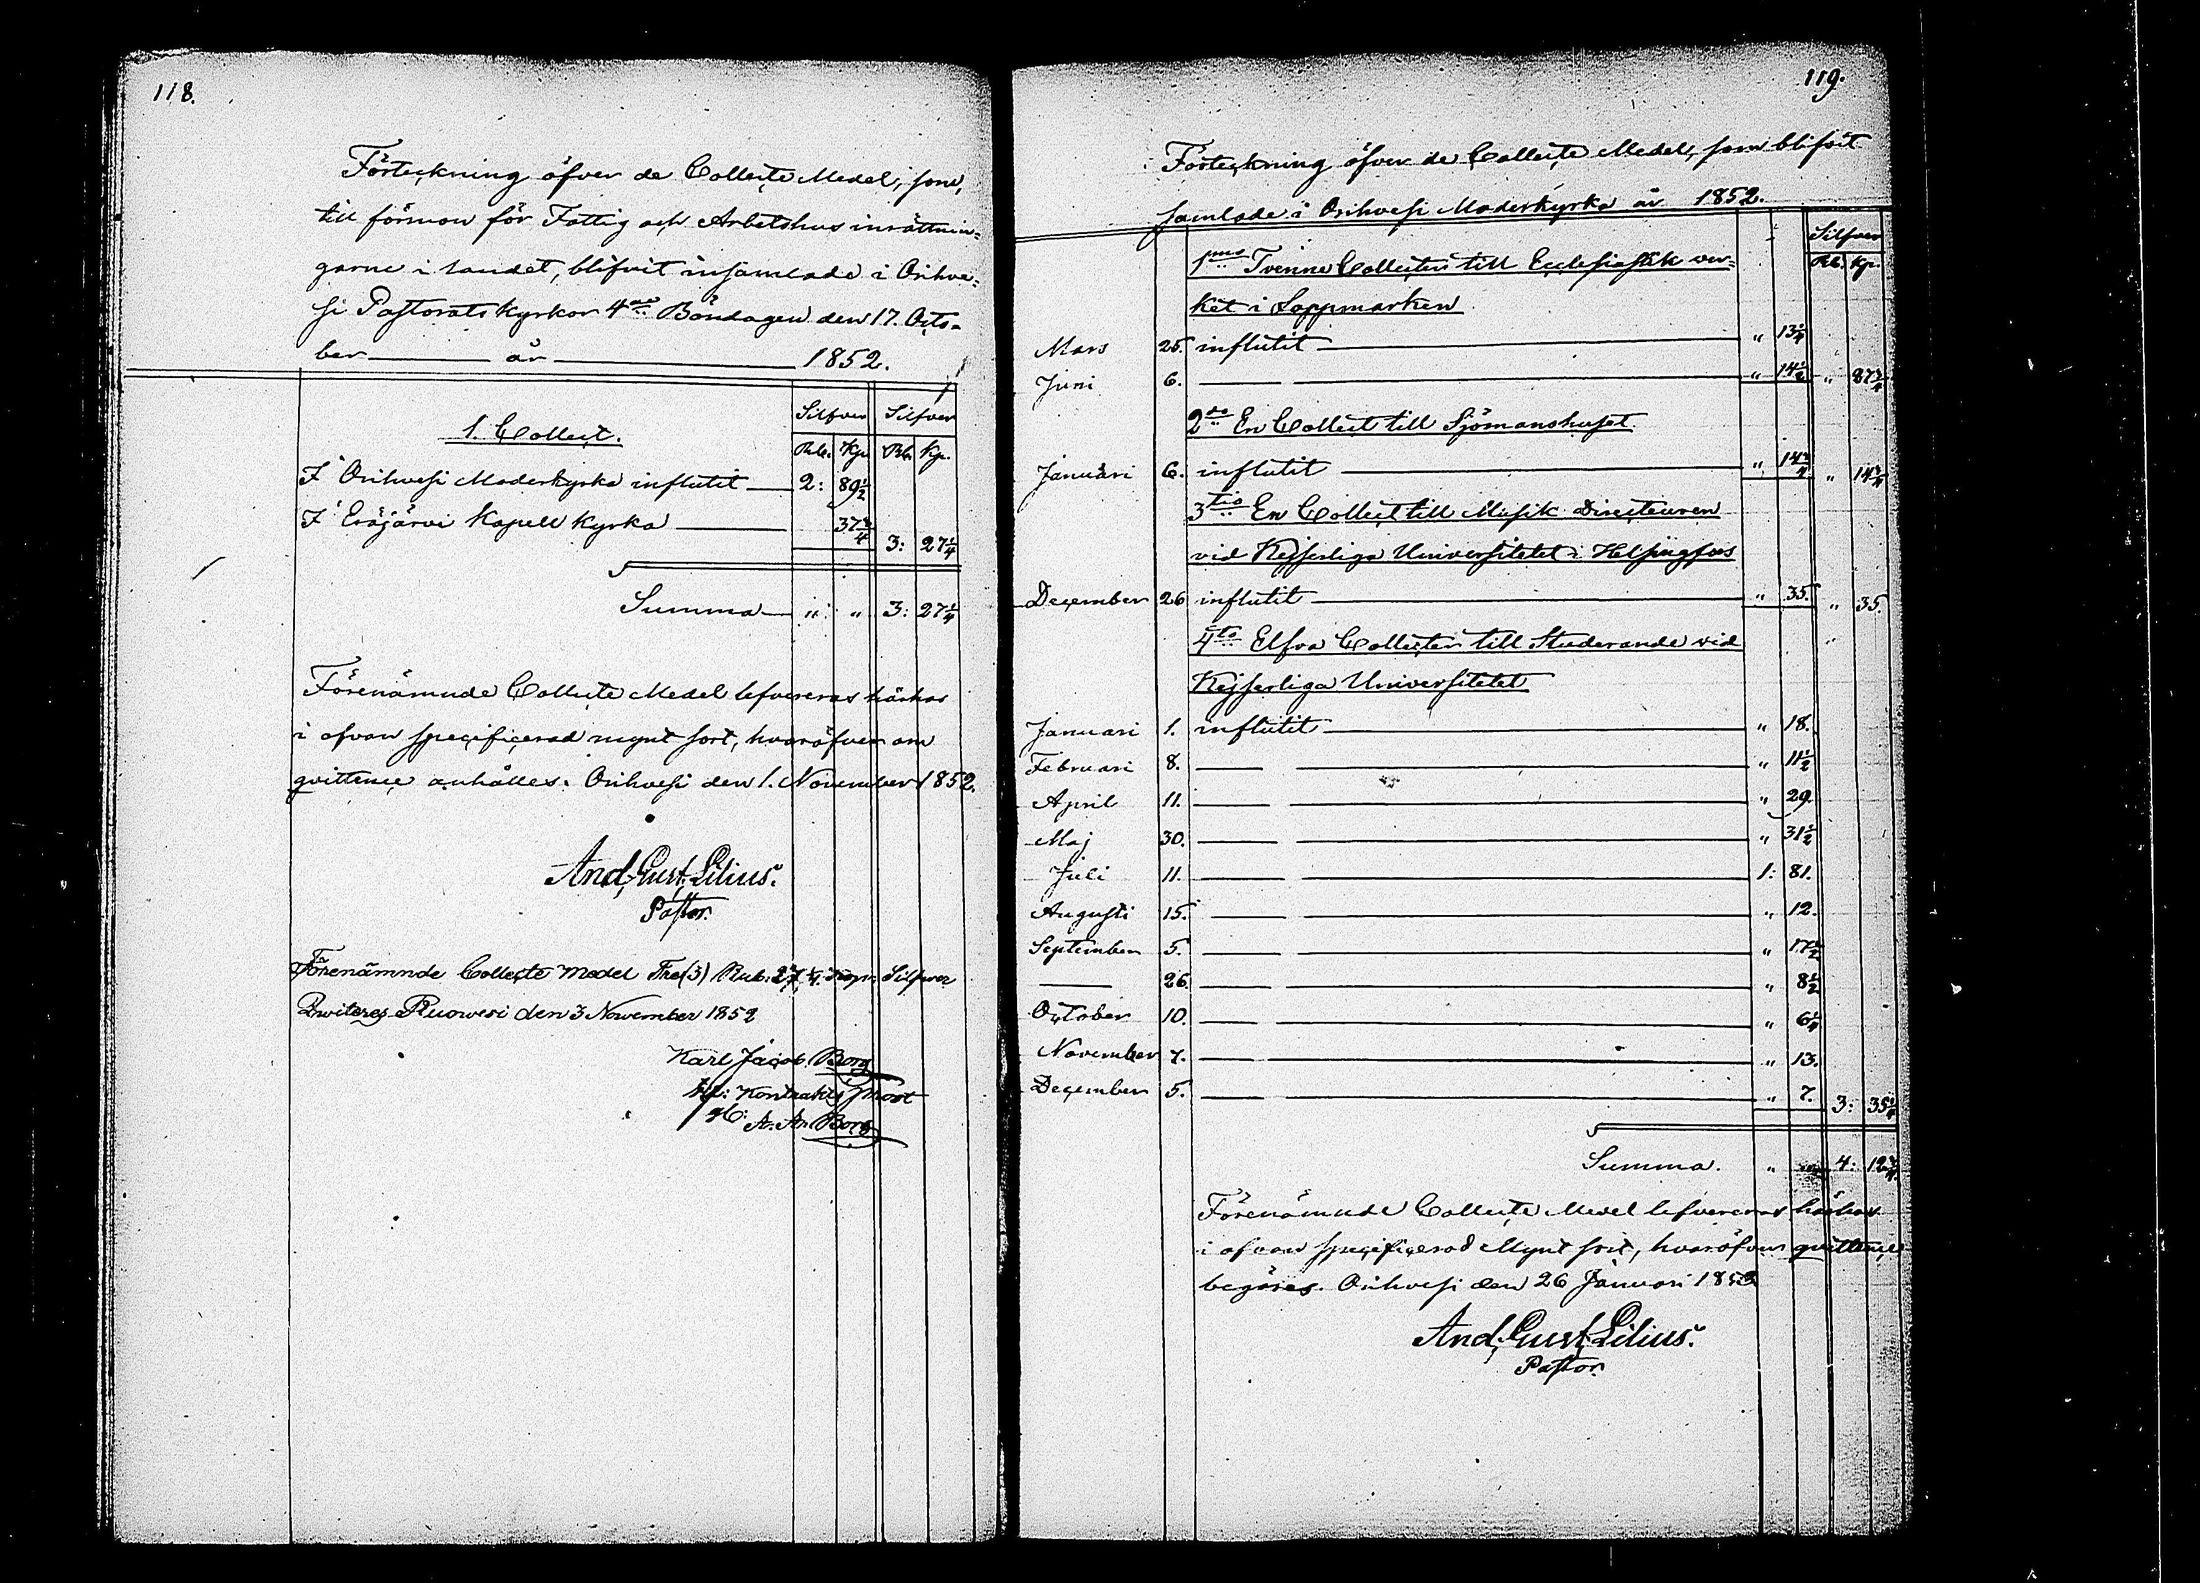 118.
Förteckning öfver de Collecte Medel, som,
till förmon för Fattig och Arbetshus inrättnin=
garne i landet, blifvit insamlade i Orihve=
si Pastorats kyrkor 4de Böndagen den 17. Octo=
ber — år — 1852.
Silfver Silfver
1. Collect.
Rub. Kp. Rb. Kp.
I Orihvesi Moderkyrka influtit — 2: 89 1/2
I Eräjärvi Kapell kyrka — 37 3/4 3: 27 1/4
Summa — " " 3: 27 1/4
Förenämnde Collecte Medel lefvereras härhos
i ofvan specificerad mynt sort, hvaröfver om
qvittence anhålles. Orihvesi den 1. November 1852.
And. Gust. Lilius.
Pastor.
Förenämnde Collecte Medel Tre (3) Rub. 27 1/4 Kop. Silfwer
Qwiteras Ruowesi den 3 November 1852
Karl Jacob Borg
Kontrakts Prost
A. An. Borg
119.
Förteckning öfver de Collecte Medel, som blifvit
samlade i Orihvesi Moderkyrka år 1852.
Silfver
Rb. Kp.
1mo Tvenne Collecter till Ecclesiastik ver=
ket i Lappmarken
Mars 25. influtit — " 13 1/4
Juni 6. — — " 14 1/2 " 27 3/4
2do En Collect till Sjömanshuset
Januari 6. influtit — " 14 3/4 " 14 3/4
3tio En Collect till Musik Directeuren
vid Kejserliga Universitetet i Helsingfors
December 26 influtit — " 35. " 35.
4to Elfva Collecter till Studerande vid
Kejserliga Universitetet
Januari 1. influtit — " 18.
Februari 8. — — " 11 1/2
April 11. — — " 29.
Maj 30. — — " 31 1/2
Juli 11. — — 1: 81.
Augusti 15. — — " 12.
September 5. — — " 17 1/2
— 26. — — " 8 1/2
October 10. — — " 6 1/4
November 7. — — " 13.
December 5. — — " 7. 3: 35 1/4
Summa. " 4: 12 3/4
Förenämnde Collecte Medel lefvereras härhos
i ofvan specificerad Mynt sort, hvaröfver qvittence
begäres. Orihvesi den 26 Januari
And. Gust. Lilius.
Pastor.